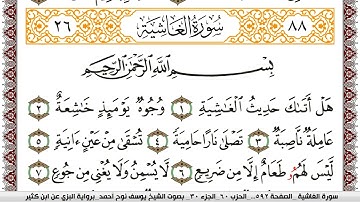 ٨٨ سُورَةُ الغَاشِيَةِ ٢٦
بِسْمِ ٱللَّهِ ٱلرَّحْمَٰنِ ٱلرَّحِيمِ
هَلْ أَتَىٰكَ حَدِيثُ ٱلْغَٰشِيَةِ ١ وُجُوهٌ يَوْمَئِذٍ خَٰشِعَةٌ ٢
عَامِلَةٌ نَّاصِبَةٌ ٣ تَصْلَىٰ نَارًا حَامِيَةً ٤ تُسْقَىٰ مِنْ عَيْنٍ ءَانِيَةٍ ٥
لَّيْسَ لَهُمُۥ طَعَامٌ إِلَّا مِن ضَرِيعٍ ٦ لَّا يُسْمِنُ وَلَا يُغْنِى مِن جُوعٍ ٧
سورة الغاشية .. الصفحة ٥٩٢ .. الحزب ٦٠ .. الجزء ٣٠ .. بصوت الشيخ يوسف نوح أحمد .. برواية البزي عن ابن كثير